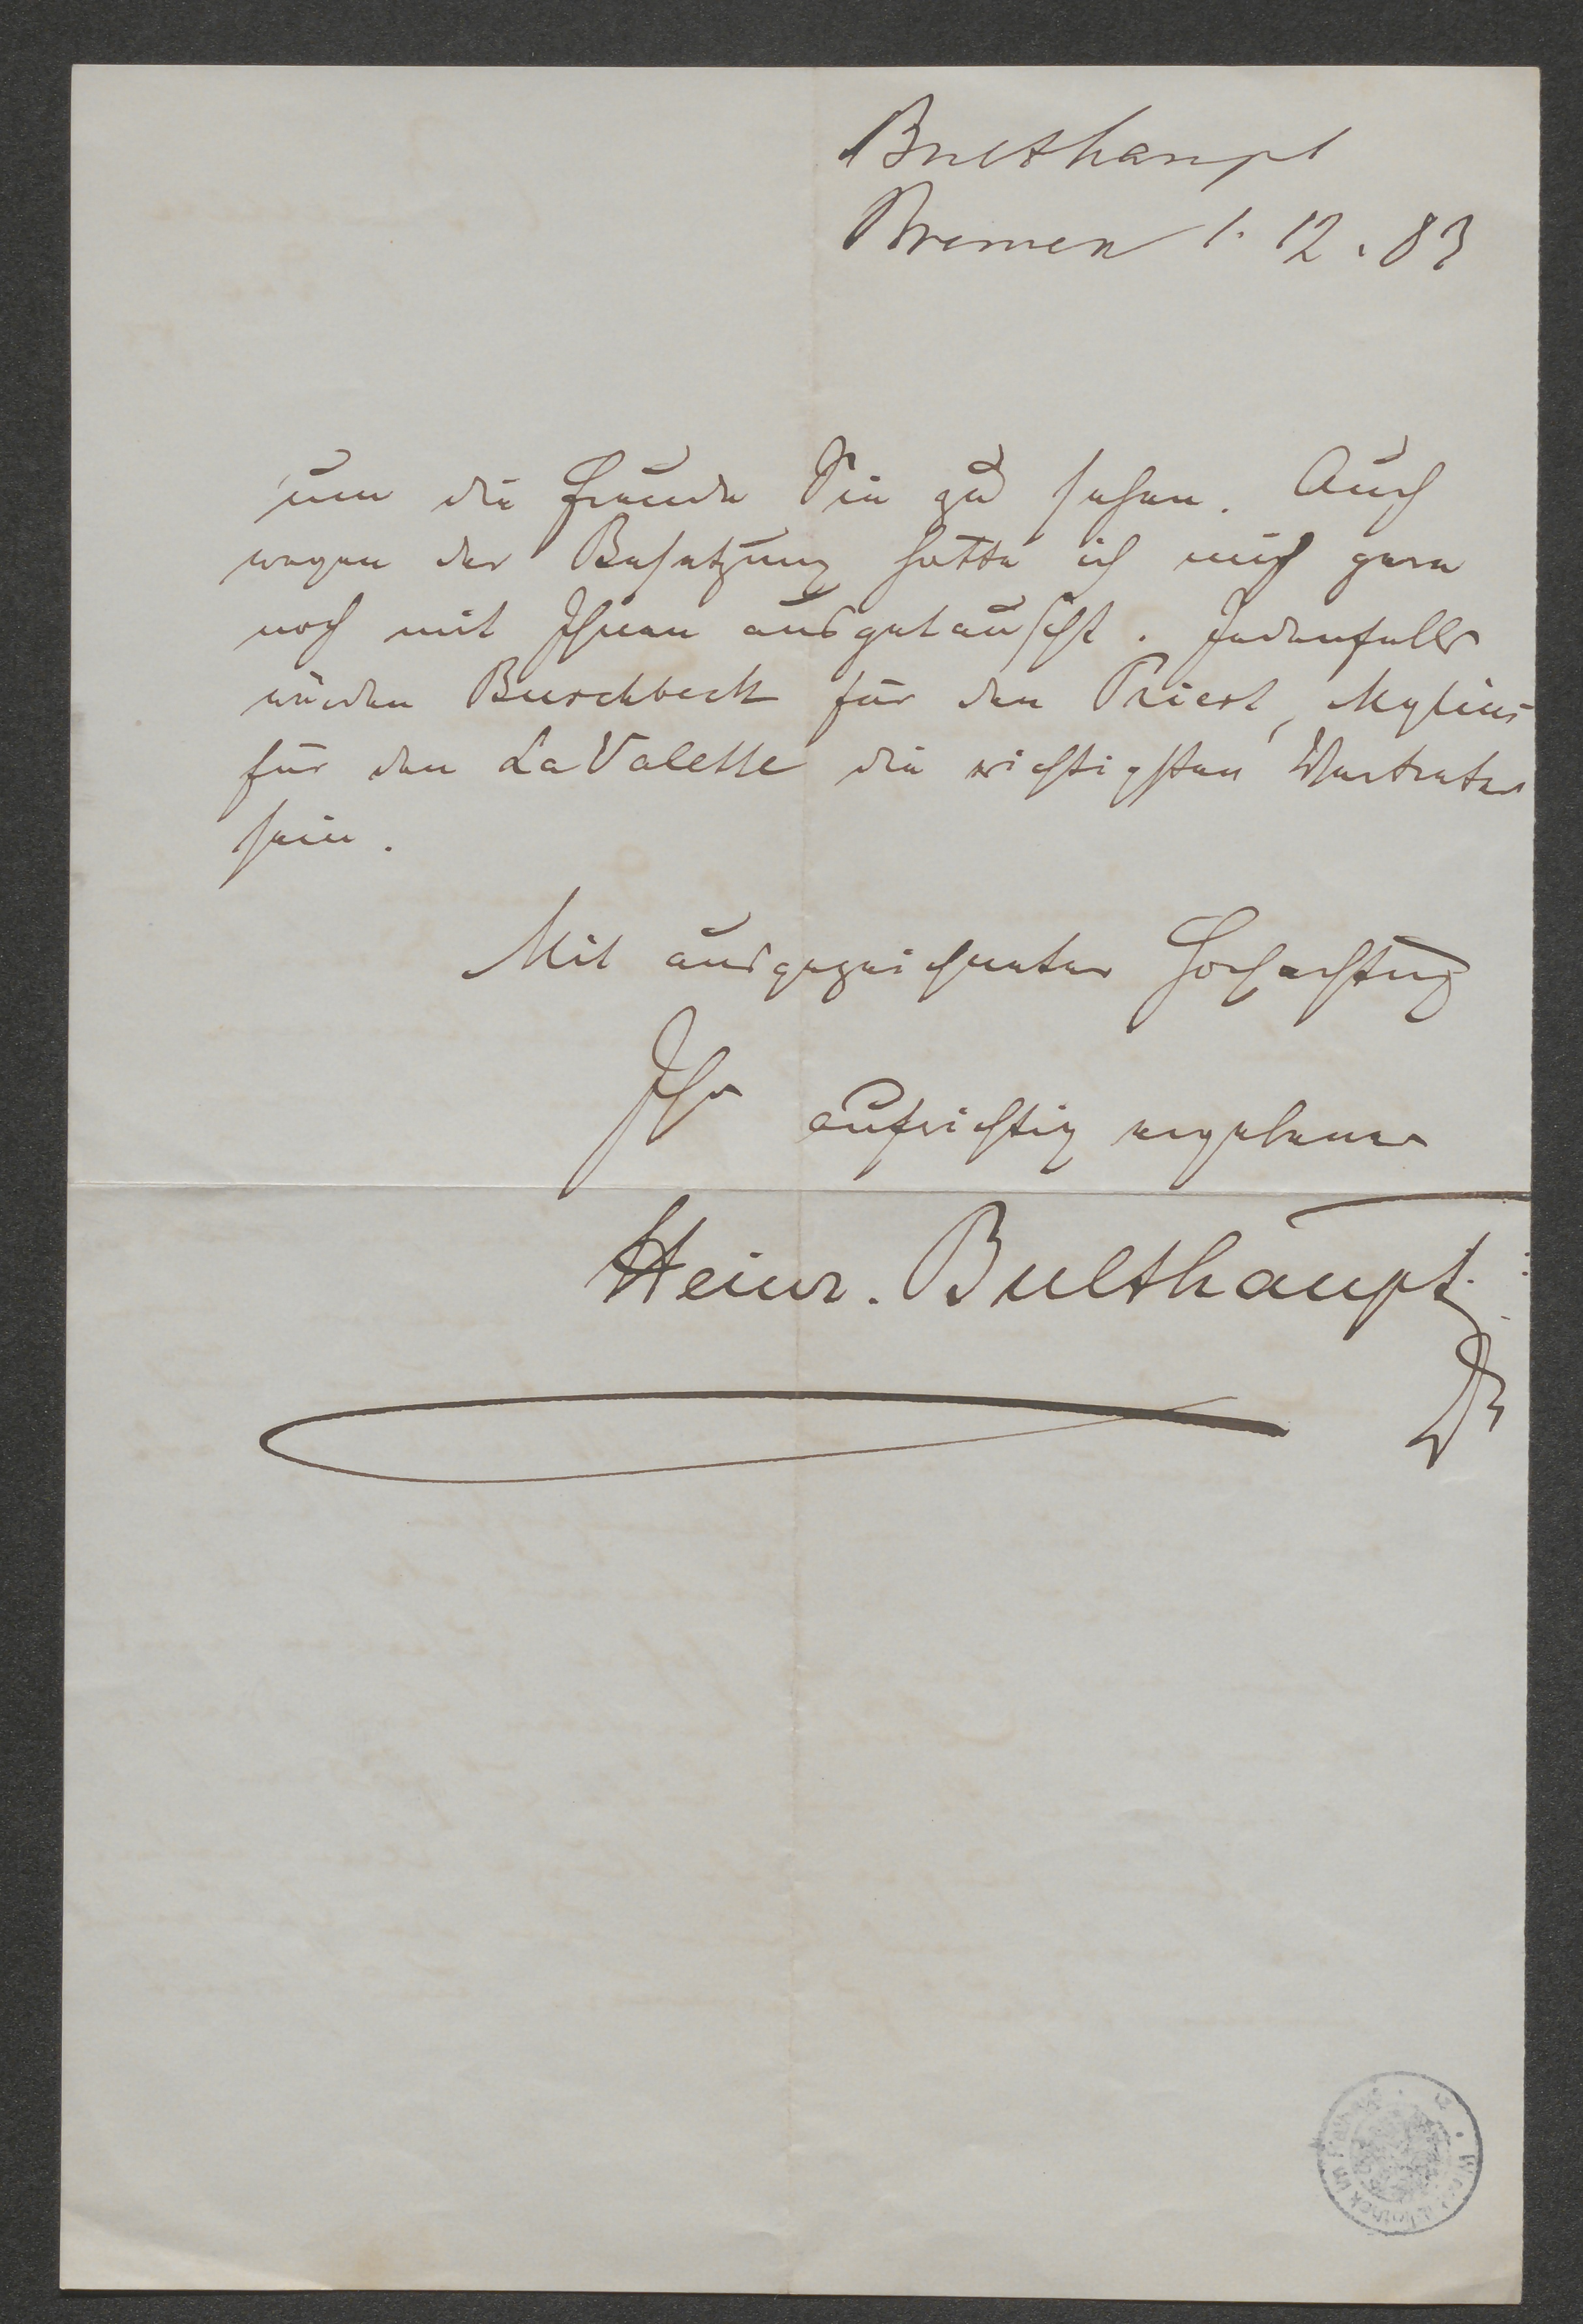 Bulthaupt
Bremen 1. 12. 83
um die Freude Sie zu sehen. Auch
wegen der Besetzung hätte ich mich gern
noch mit Ihnen ausgetauscht. Jedenfalls
würden Burschbeck für den Priest, Mylius
für den La Valette die richtigsten Vertreter
sein.
Mit ausgezeichneter Hochachtung
Ihr aufrichtig ergebener
Heinr. Bulthaupt.
Dr